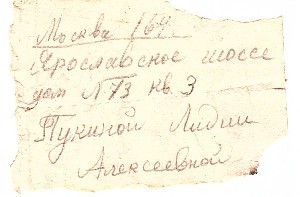 Москва 164
Ярославское шоссе
дом №73 кв. 3
Пукиной Лидии
Алексеевной